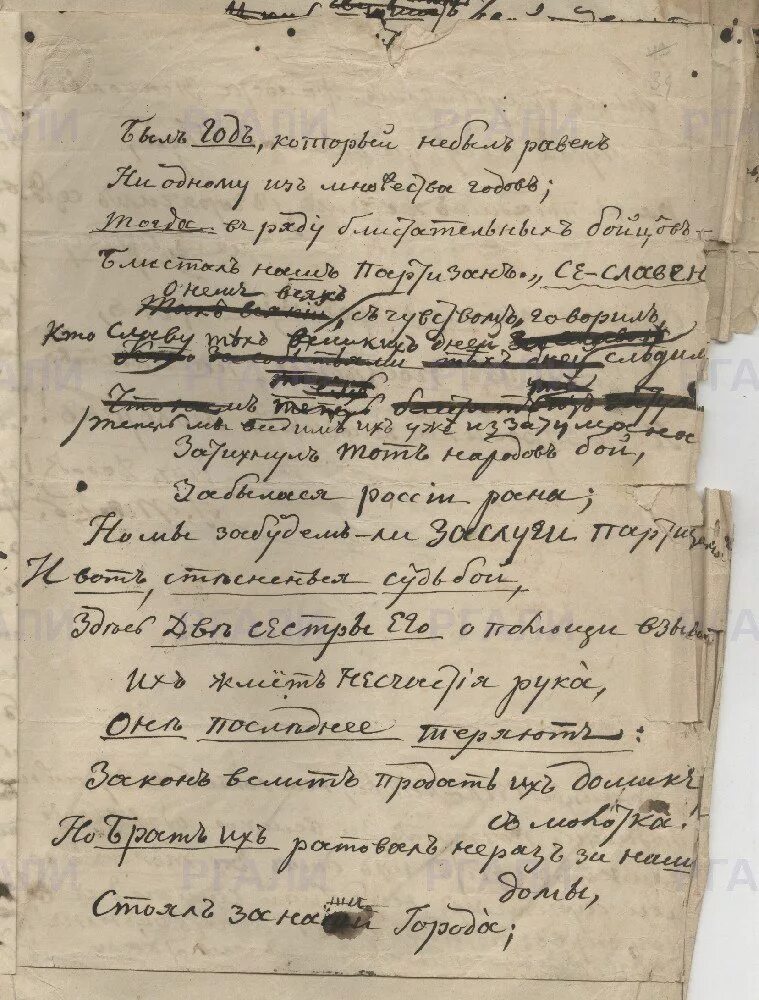 39
Былъ Годъ, который небылъ равенъ
Ни одному изъ множества годовъ;
Тогда въ ряду блистательныхъ бойцовъ
Блисталъ нашъ Партизанъ „ СЕ-СЛАВЕН
О немъ всякъ
съ чувствомъ говоримъ,
Кто Славу тѣхъ великихъ дней слѣдилъ
теперь мы видимъ ихъ уже изъ за тумана
Затихнулъ тотъ народовъ бой,
Забылася россіи рана;
Но мы забудемъ-ли Заслуги парти
И вотъ, стѣсненныя судьбой,
Здѣсь Двѣ сестры Его о помощи взыва
Ихъ жмётъ Несчастія рука,
Онѣ послѣднее теряютъ:
Законъ велитъ продать ихъ домикъ
съ молотка!
Но Братъ ихъ ратовалъ неразъ за наши
домы,
Стоялъ за наши Города;
РГАЛИ